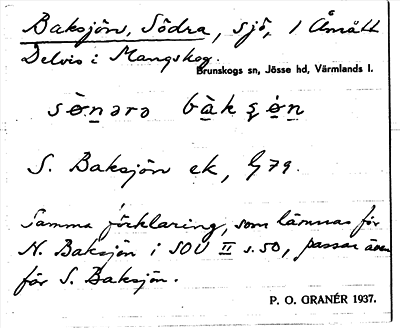 Baksjön, Södra, sjö, 1 Åmått
Delvis i Mangskog.
Brunskogs sn, Jösse hd, Värmlands l.
S. Baksjön ek, G79.
Samma förklaring, som lämnas för
N. Baksjön i SOV II s.50, passar även
för S. Baksjön.
P. O. GRANÉR 1937.